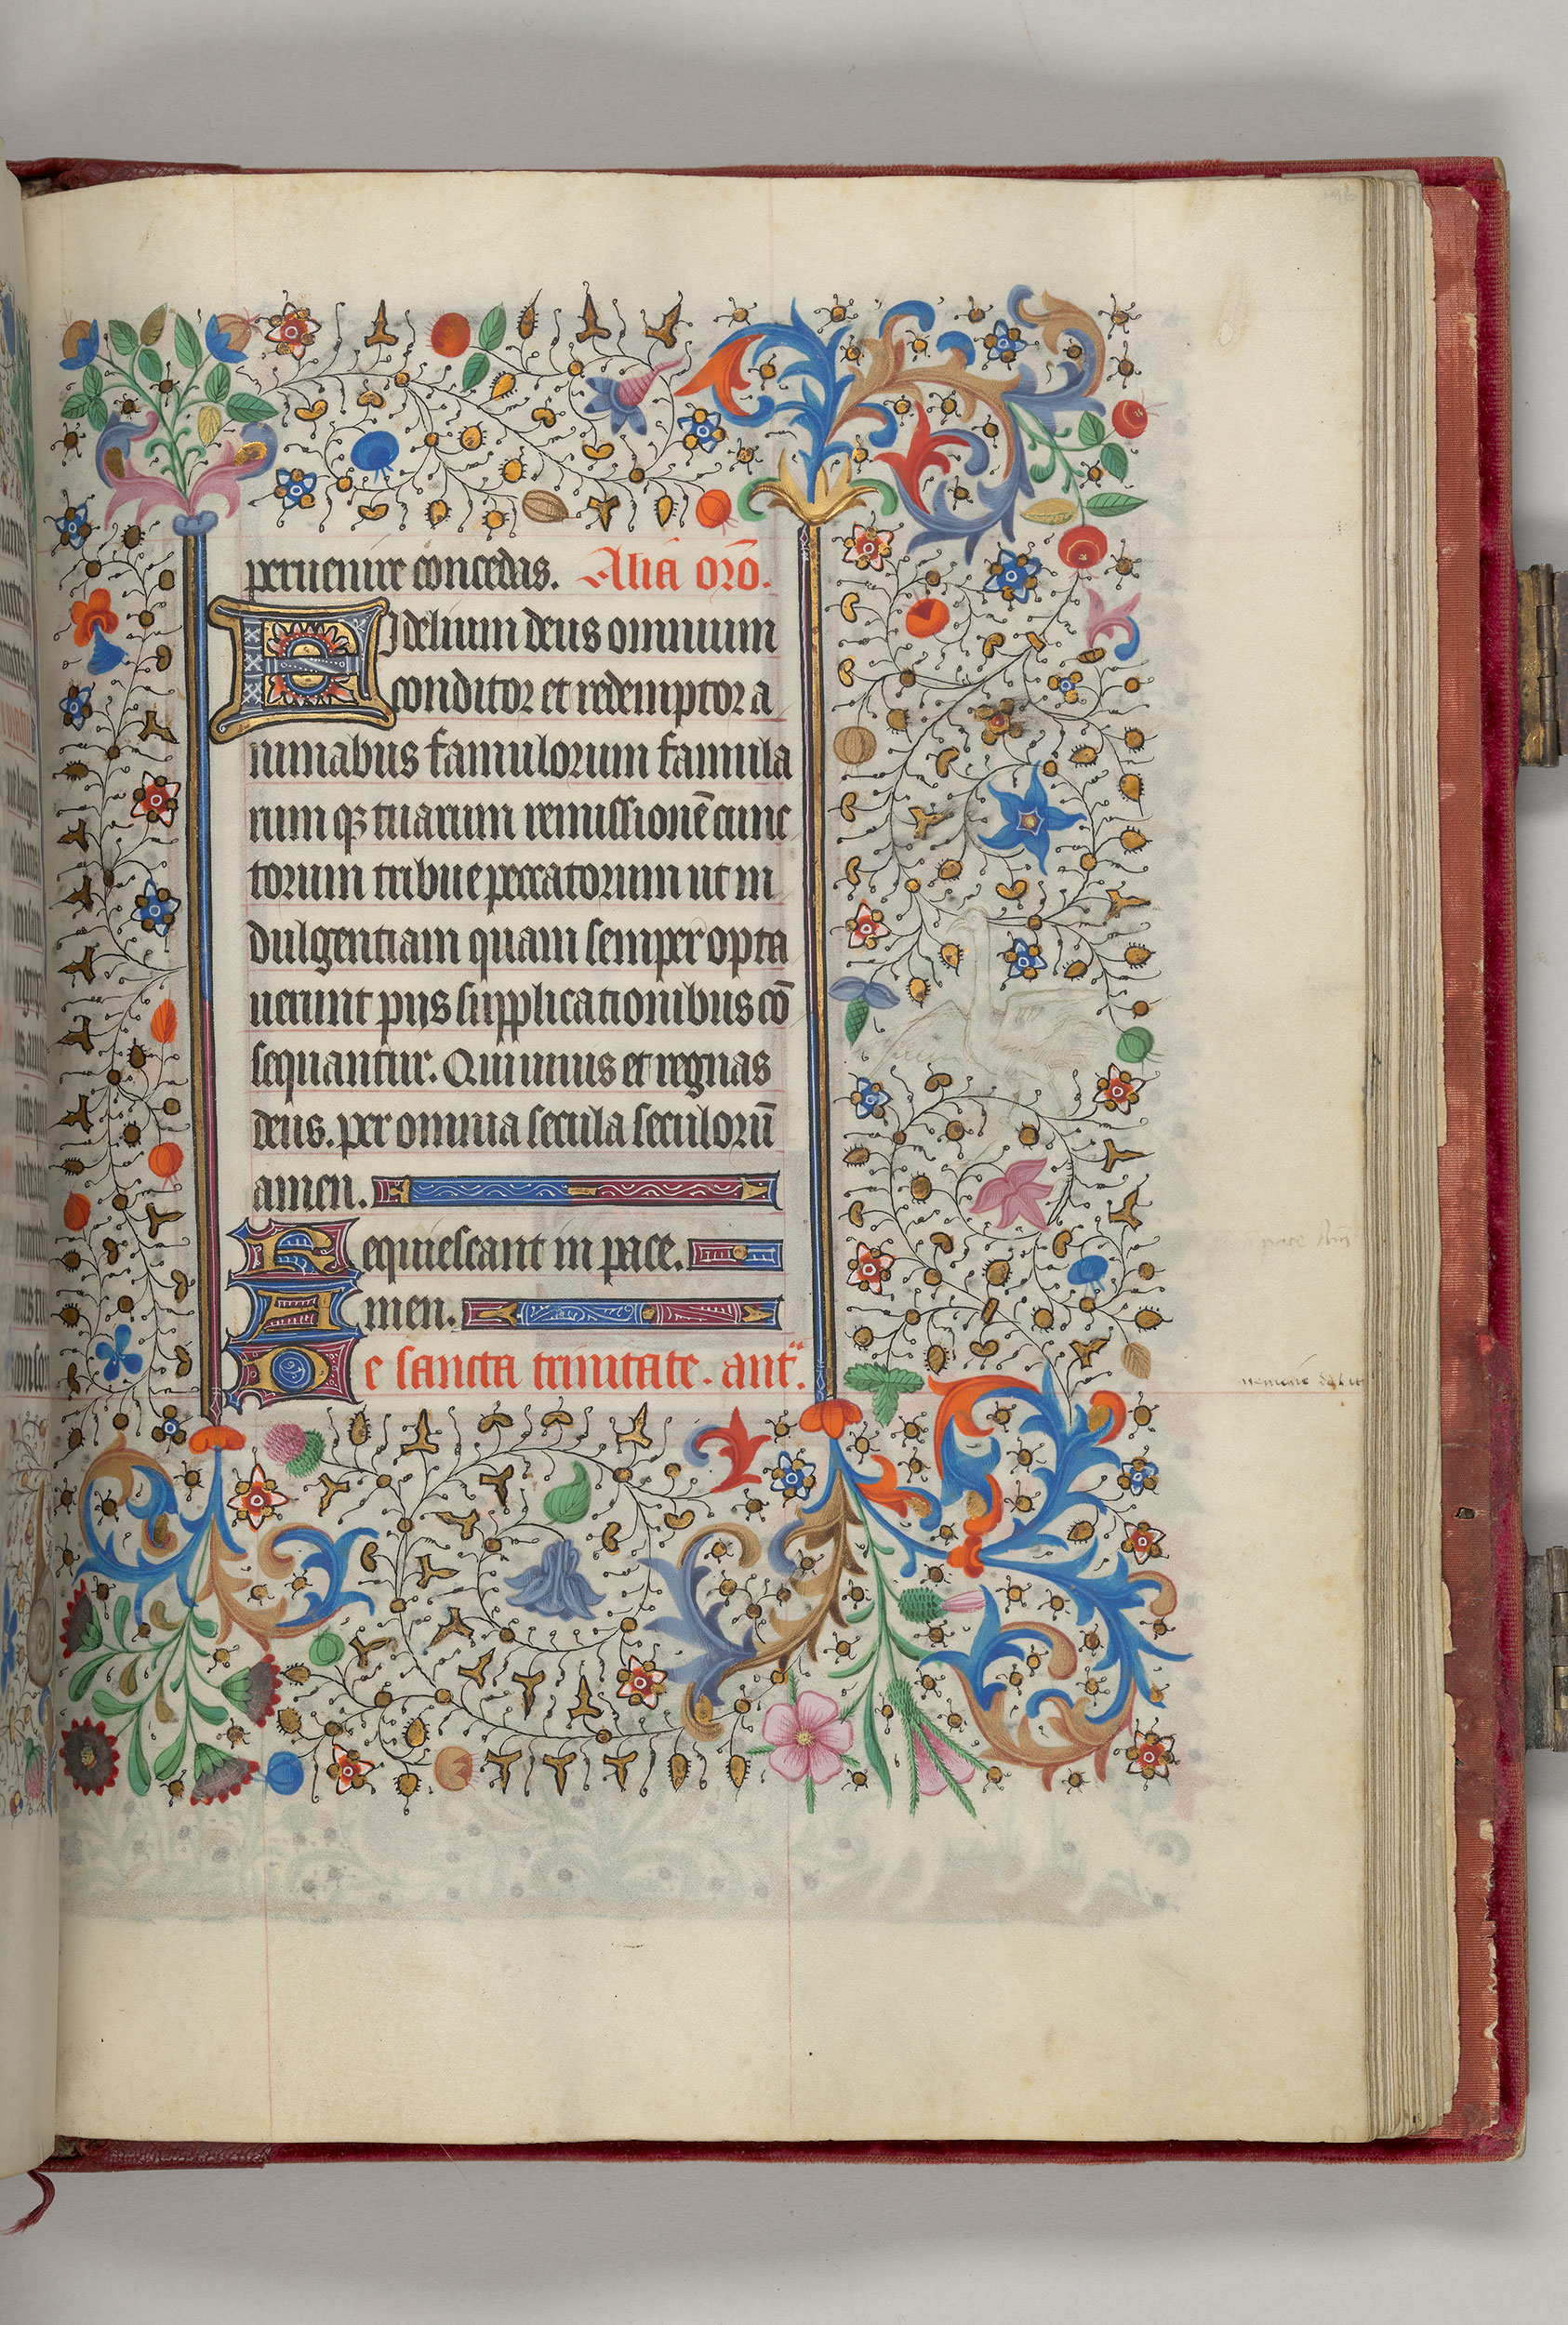 peruenire concedas. Alia᷈ oro᷈.
Fidelium deus omnium
conditor et redemptor a
nimabus famulorum famula
rum qꝫ tuarum remissionē cunc
torum tribue peccatorum ut in
dulgentiam quam semper opta
uerunt pijs supplicationibus cō
sequantur. Qui uiuis et regnas
deus. per omnia secula seculorū
amen.
Requiescant in pace.
Amen.
De sancta trinitate. ant̄.